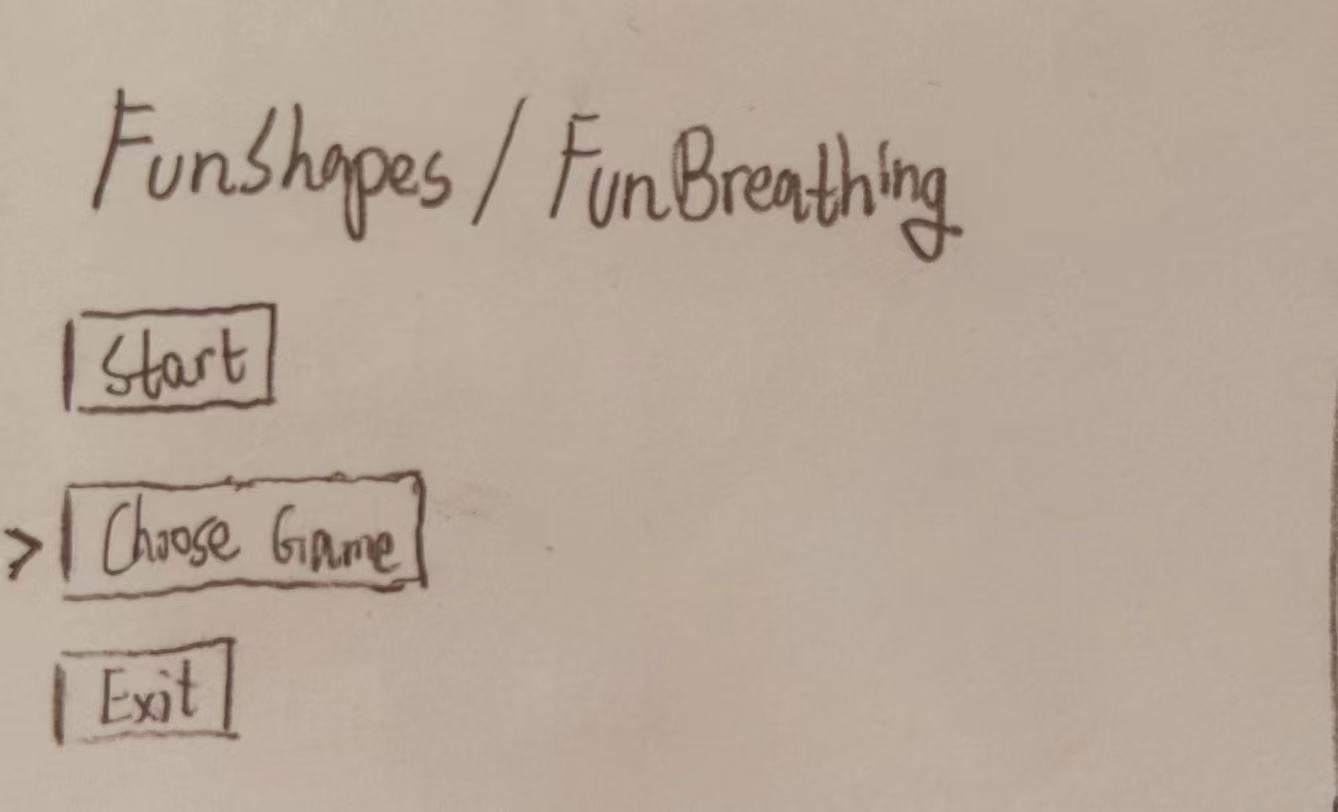 FunShapes / FunBreathing
Start
> Choose Game
Exit